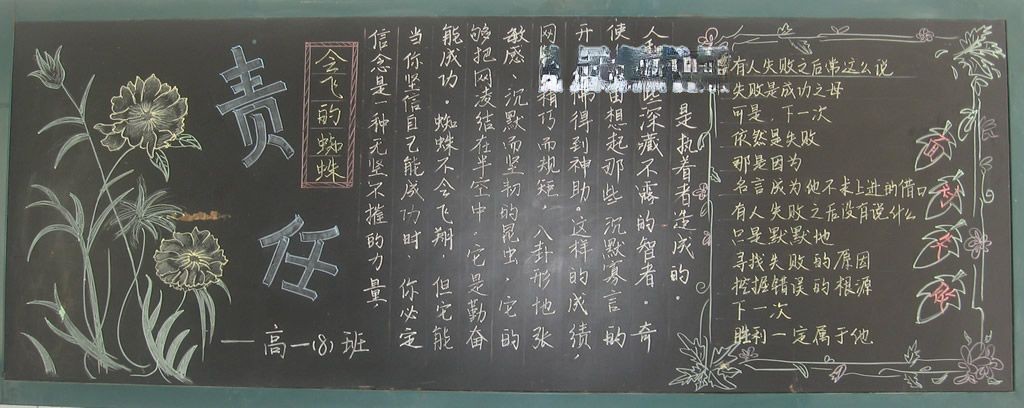 责任
会飞的蜘蛛
一高一(8)班
信念是一种无坚不摧的力量
当你坚信自己能成功时、你必定
能成功。蜘蛛不会飞翔，但它能
够把网凌结在半空中，它是勤奋
敏感、沉默而坚韧的昆虫，它的
网精巧而规矩，八卦形地张
开佛得到神助，这样的成绩，
使由想起那些沉默寡言的
人和些深藏不露的智者。奇
是执着者造成的。
有人失败之后常这么说
失败是成功之母
可是，下一次
依然是失败
那是因为
名言成为他不求上进的借口
有人失败之后没有说什么
只是默默地
寻找失败的原因
挖掘错误的根源
下一次
胜利一定属于他